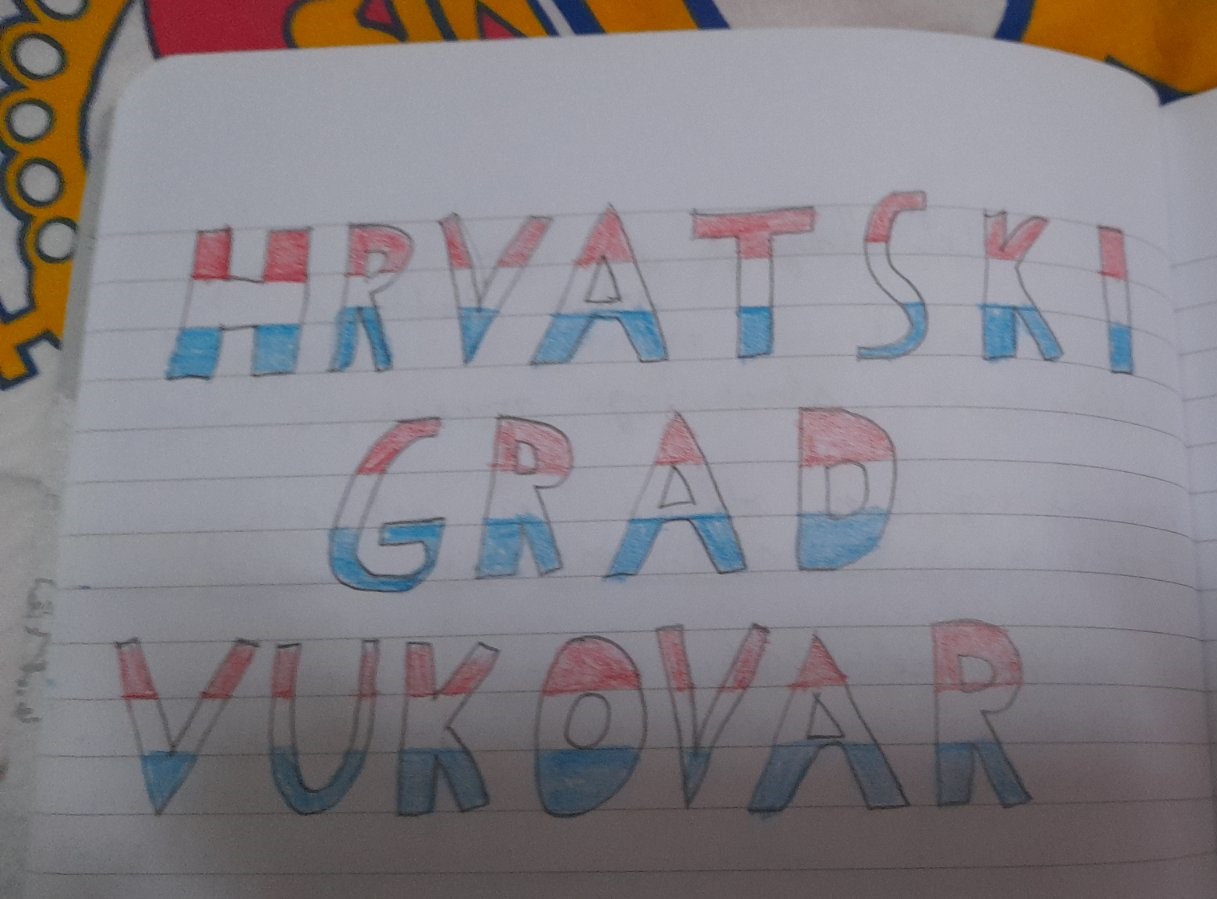 HRVATSKI
GRAD
VUKOVAR